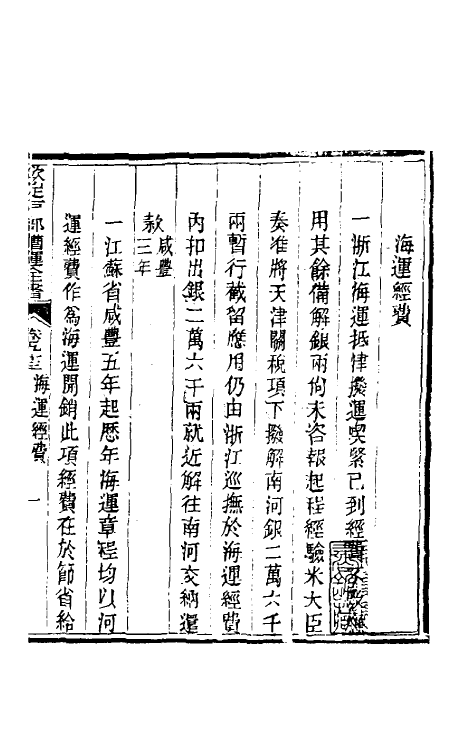 海運經費
一浙江海運抵津撥運喫緊已到經費不敷
用其餘備解銀兩尙未咨報起程經驗米大臣
奏准將天津關稅項下撥解南河銀二萬六千
兩暫行截留應用仍由浙江巡撫於海運經費
內扣出銀二萬六千兩就近解往南河交納還
款咸豐三年
一江蘇省咸豐五年起歷年海運章程均以河
運經費作爲海運開銷此項經費在於節省給
欽定戶部漕運全書 卷九十三 海運經費 一